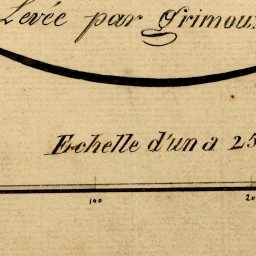 Levée par Grimou
Echelle d'un a 25
100 20